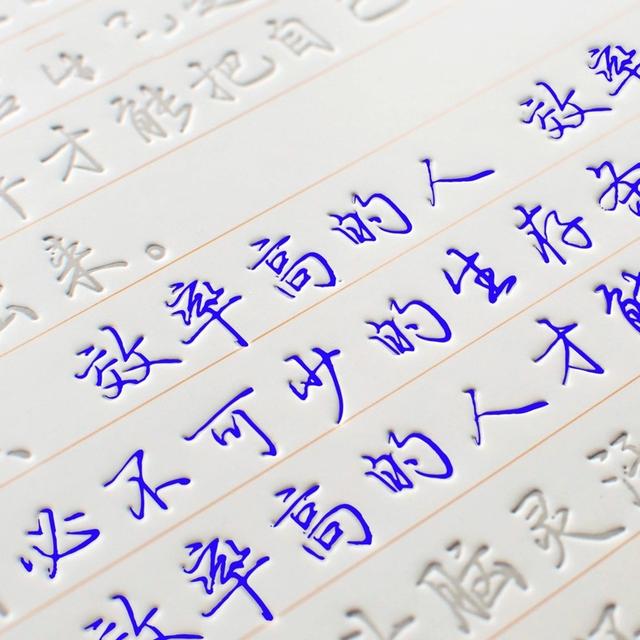 出
才能把自己
来。
效率高的人 效率
必不可少的生存
效率高的人才能
脑灵活